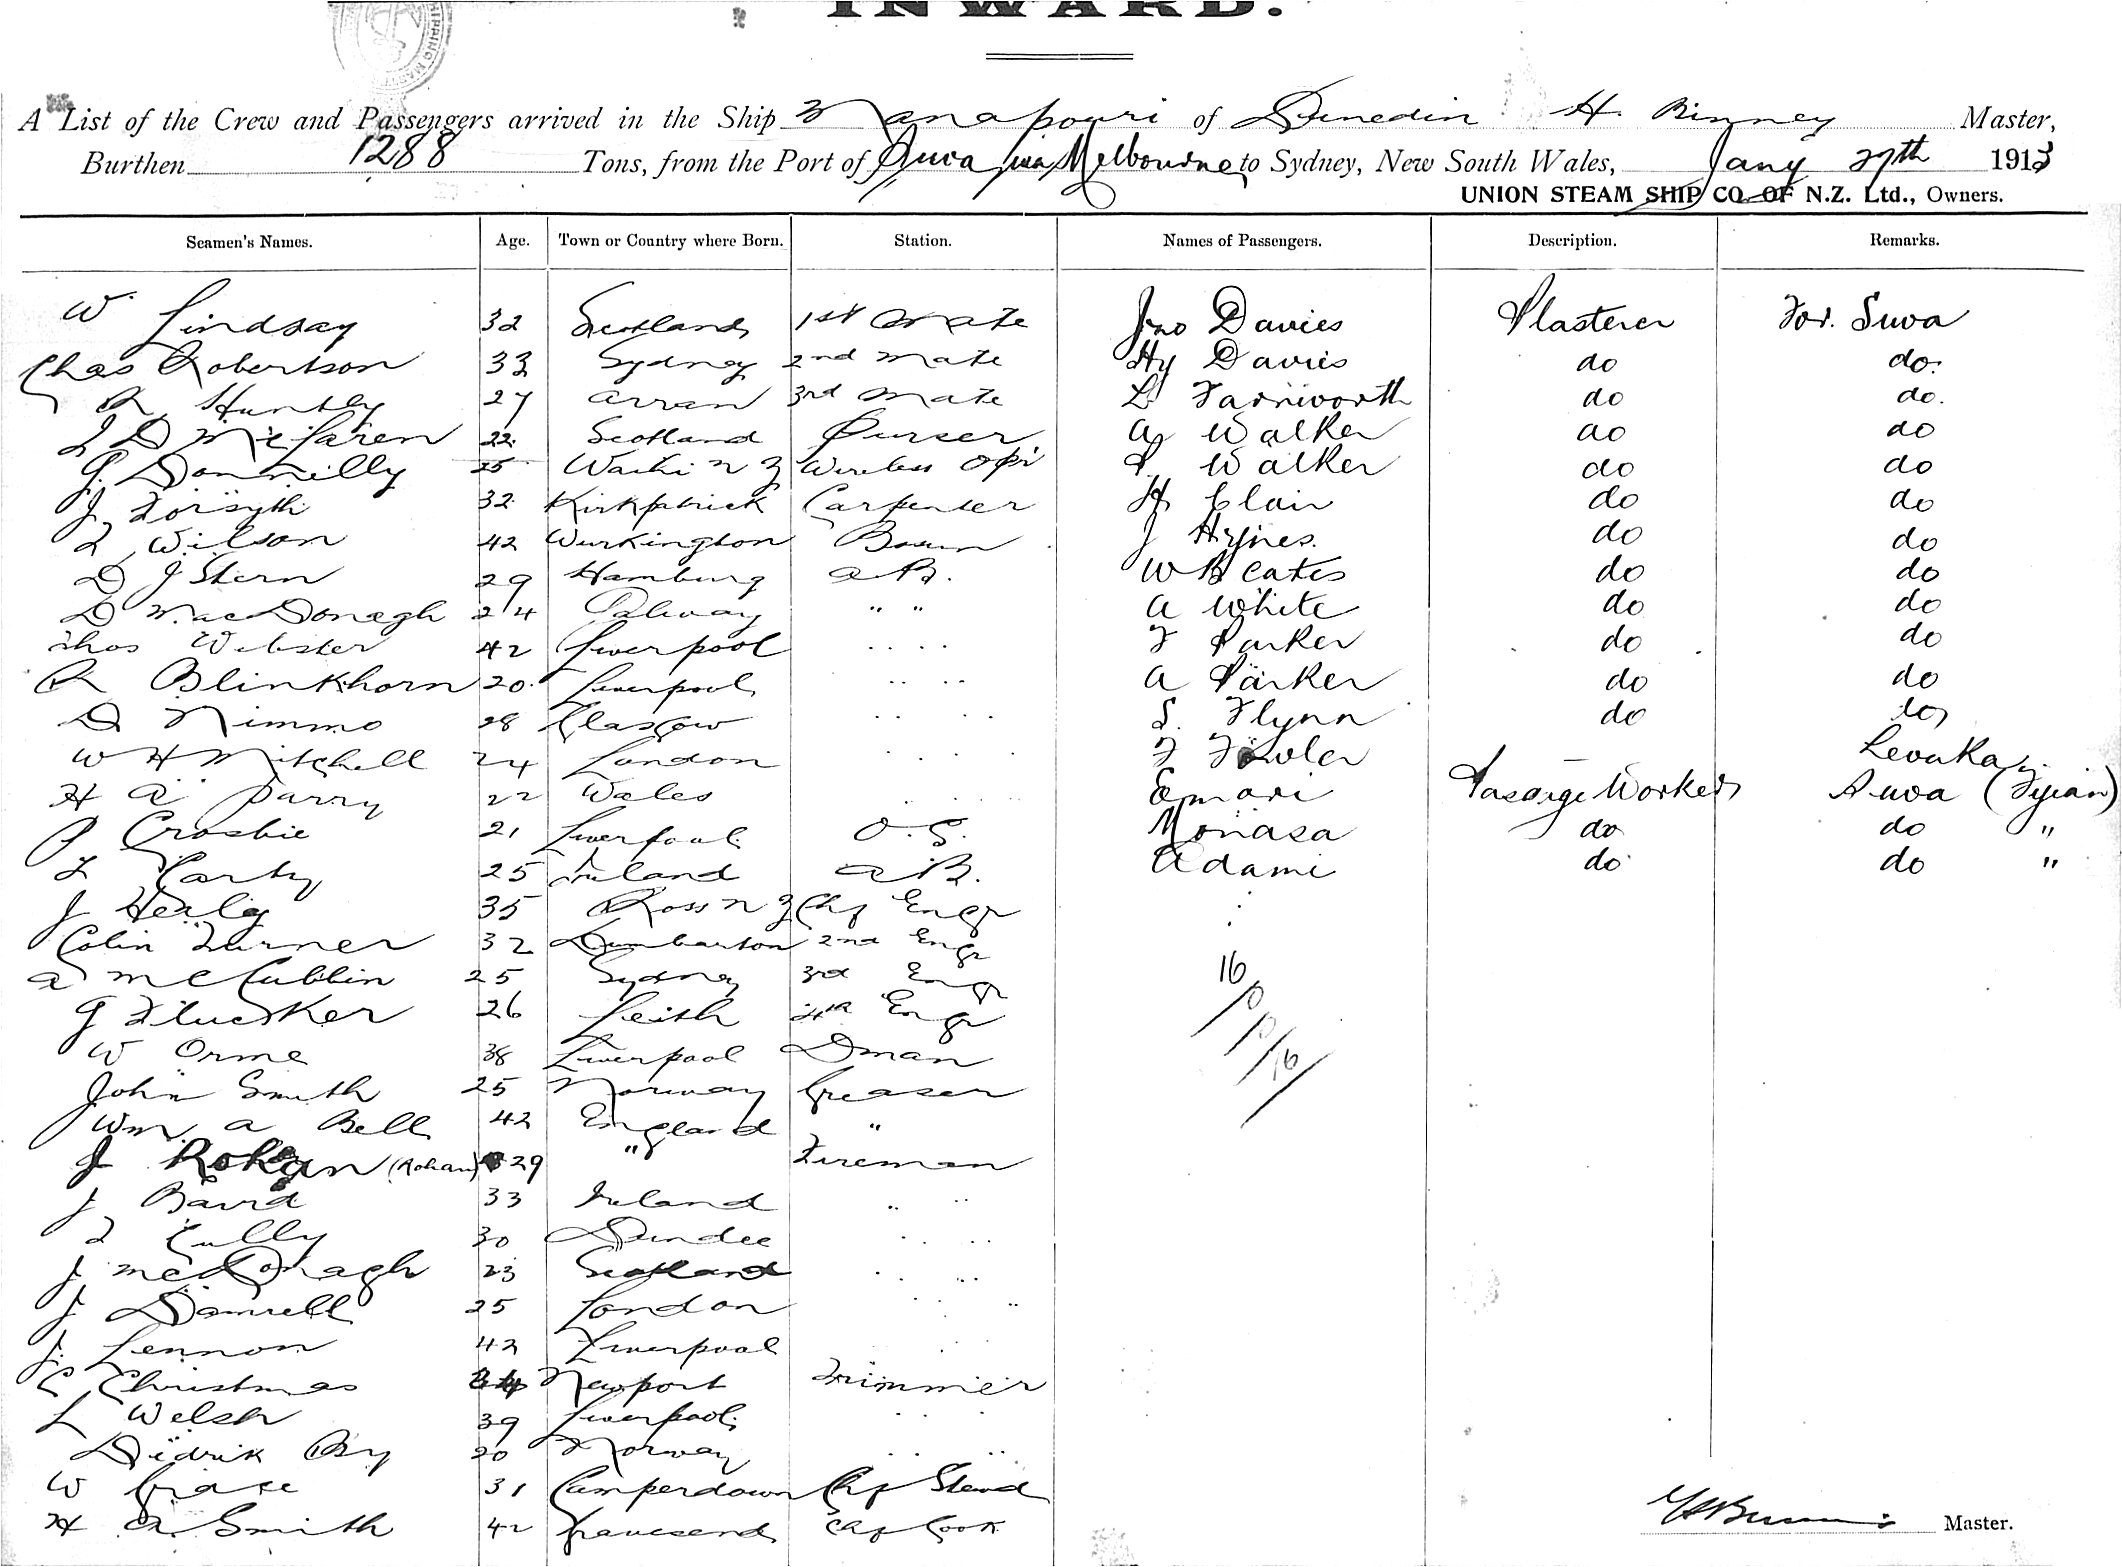 INWARD.
A List of the Crew and Passengers arrived in the Ship Manapouri of Dunedin H. Binney Master,
Burthen 1288 Tons, from the Port of Suva via Melbourne to Sydney, New South Wales, Jany 27th 1913
UNION STEAM SHIP CO. OF N.Z. Ltd., Owners.
Seamen's Names. Age. Town or Country where Born. Station. Names of Passengers. Description. Remarks.
W Lindsay 32 Scotland 1st Mate Jno Davies Plasterer For. Suva
Chas Robertson 33 Sydney 2nd Mate Hy Davies do do.
R Huntly 27 Arran 3rd Mate L Farnworth do do.
D McLaren 22 Scotland Purser A Walker do do
G. Donnilly 25 Waihi N Z Wireless Opr P. Walker do do
J Forsyth 32 Kirkpatrick Carpenter H Clair do do
T Wilson 42 Workington Bosun J Hynes. do do
D J Stern 29 Hamburg A.B. W B Cates do do
D MacDonagh 24 Galway " " A White do do
Thos Webster 42 Liverpool " " F Parker do do
R Blinkhorn 20 Liverpool " " A Parker do do
D Nimmo 28 Glasgow " " S. Flynn do do
W H Mitchell 24 London " " F Fowler Levuka
H A Parry 22 Wales " " Emori Passage Workers Suva (Fijian)
P Crosbie 21 Liverpool O.S. Monasa do do "
T Carty 25 Ireland A.B. Adami do do "
J Healy 35 Ross N Z Chf Engr
Colin Turner 32 Dumbarton 2nd Engr
A McCubbin 25 Sydney 3rd Engr 16
G Flucker 26 Leith 4th Engr
W Orme 38 Liverpool Dman 16
John Smith 25 Norway Greaser
Wm A Bell 42 England "
J Rohan (Rohan) 29 " Fireman
J Baird 33 Ireland " "
T Cully 30 Dundee " "
J McDonagh 23 Scotland " "
J Damrell 25 London " "
J. Lennon 42 Liverpool " "
C Christmas Newport Trimmer
L Welsh 39 Liverpool " "
Didrik By 20 Norway " "
W Grace 31 Camperdown Chf Stewd
H A Smith 42 Gravesend Chf Cook
H Binney Master.